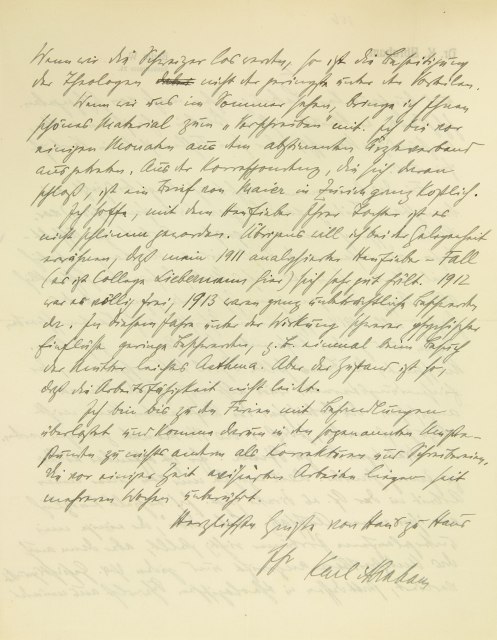 Wenn wir die Schweizer los werden, so ist die Beseitigung
der Theologen nicht der geringste unter den Vorteilen.
Wenn wir uns im Sommer sehen, bringe ich Ihnen
schönes Material zum „Verschreiben" mit. Ich bin vor
einigen Monaten aus dem abstinenten Ärzteverband
ausgetreten. Aus der Korrespondenz, die sich daran
schloß, ist ein Brief von Maier in Zürich ganz köstlich.
Ich hoffe, mit dem Heufieber Ihrer Tochter ist es
nicht schlimm geworden. Übrigens will ich bei der Gelegenheit
erwähnen, daß mein 1911 analysierter Heufieber-Fall
(es ist College Liebermann hier) sich sehr gut hält. 1912
war er völlig frei, 1913 waren ganz unbeträchtliche Beschwerden
da. In diesem Jahre unter der Wirkung schwerer psychischer
Einflüsse geringe Beschwerden, z. B. einmal beim Besuch
der Mutter leichtes Asthma. Aber der Zustand ist so,
daß die Arbeitsfähigkeit nicht leidet.
Ich bin bis zu den Ferien mit Behandlungen
überlastet und komme darum in den sogenannten Muße-
stunden zu nichts anderm als Korrekturen und Schreibereien.
Die vor einiger Zeit avisierten Arbeiten liegen seit
mehreren Wochen unberührt.
Herzlichste Grüße von Haus zu Haus
Ihr
Karl Abraham